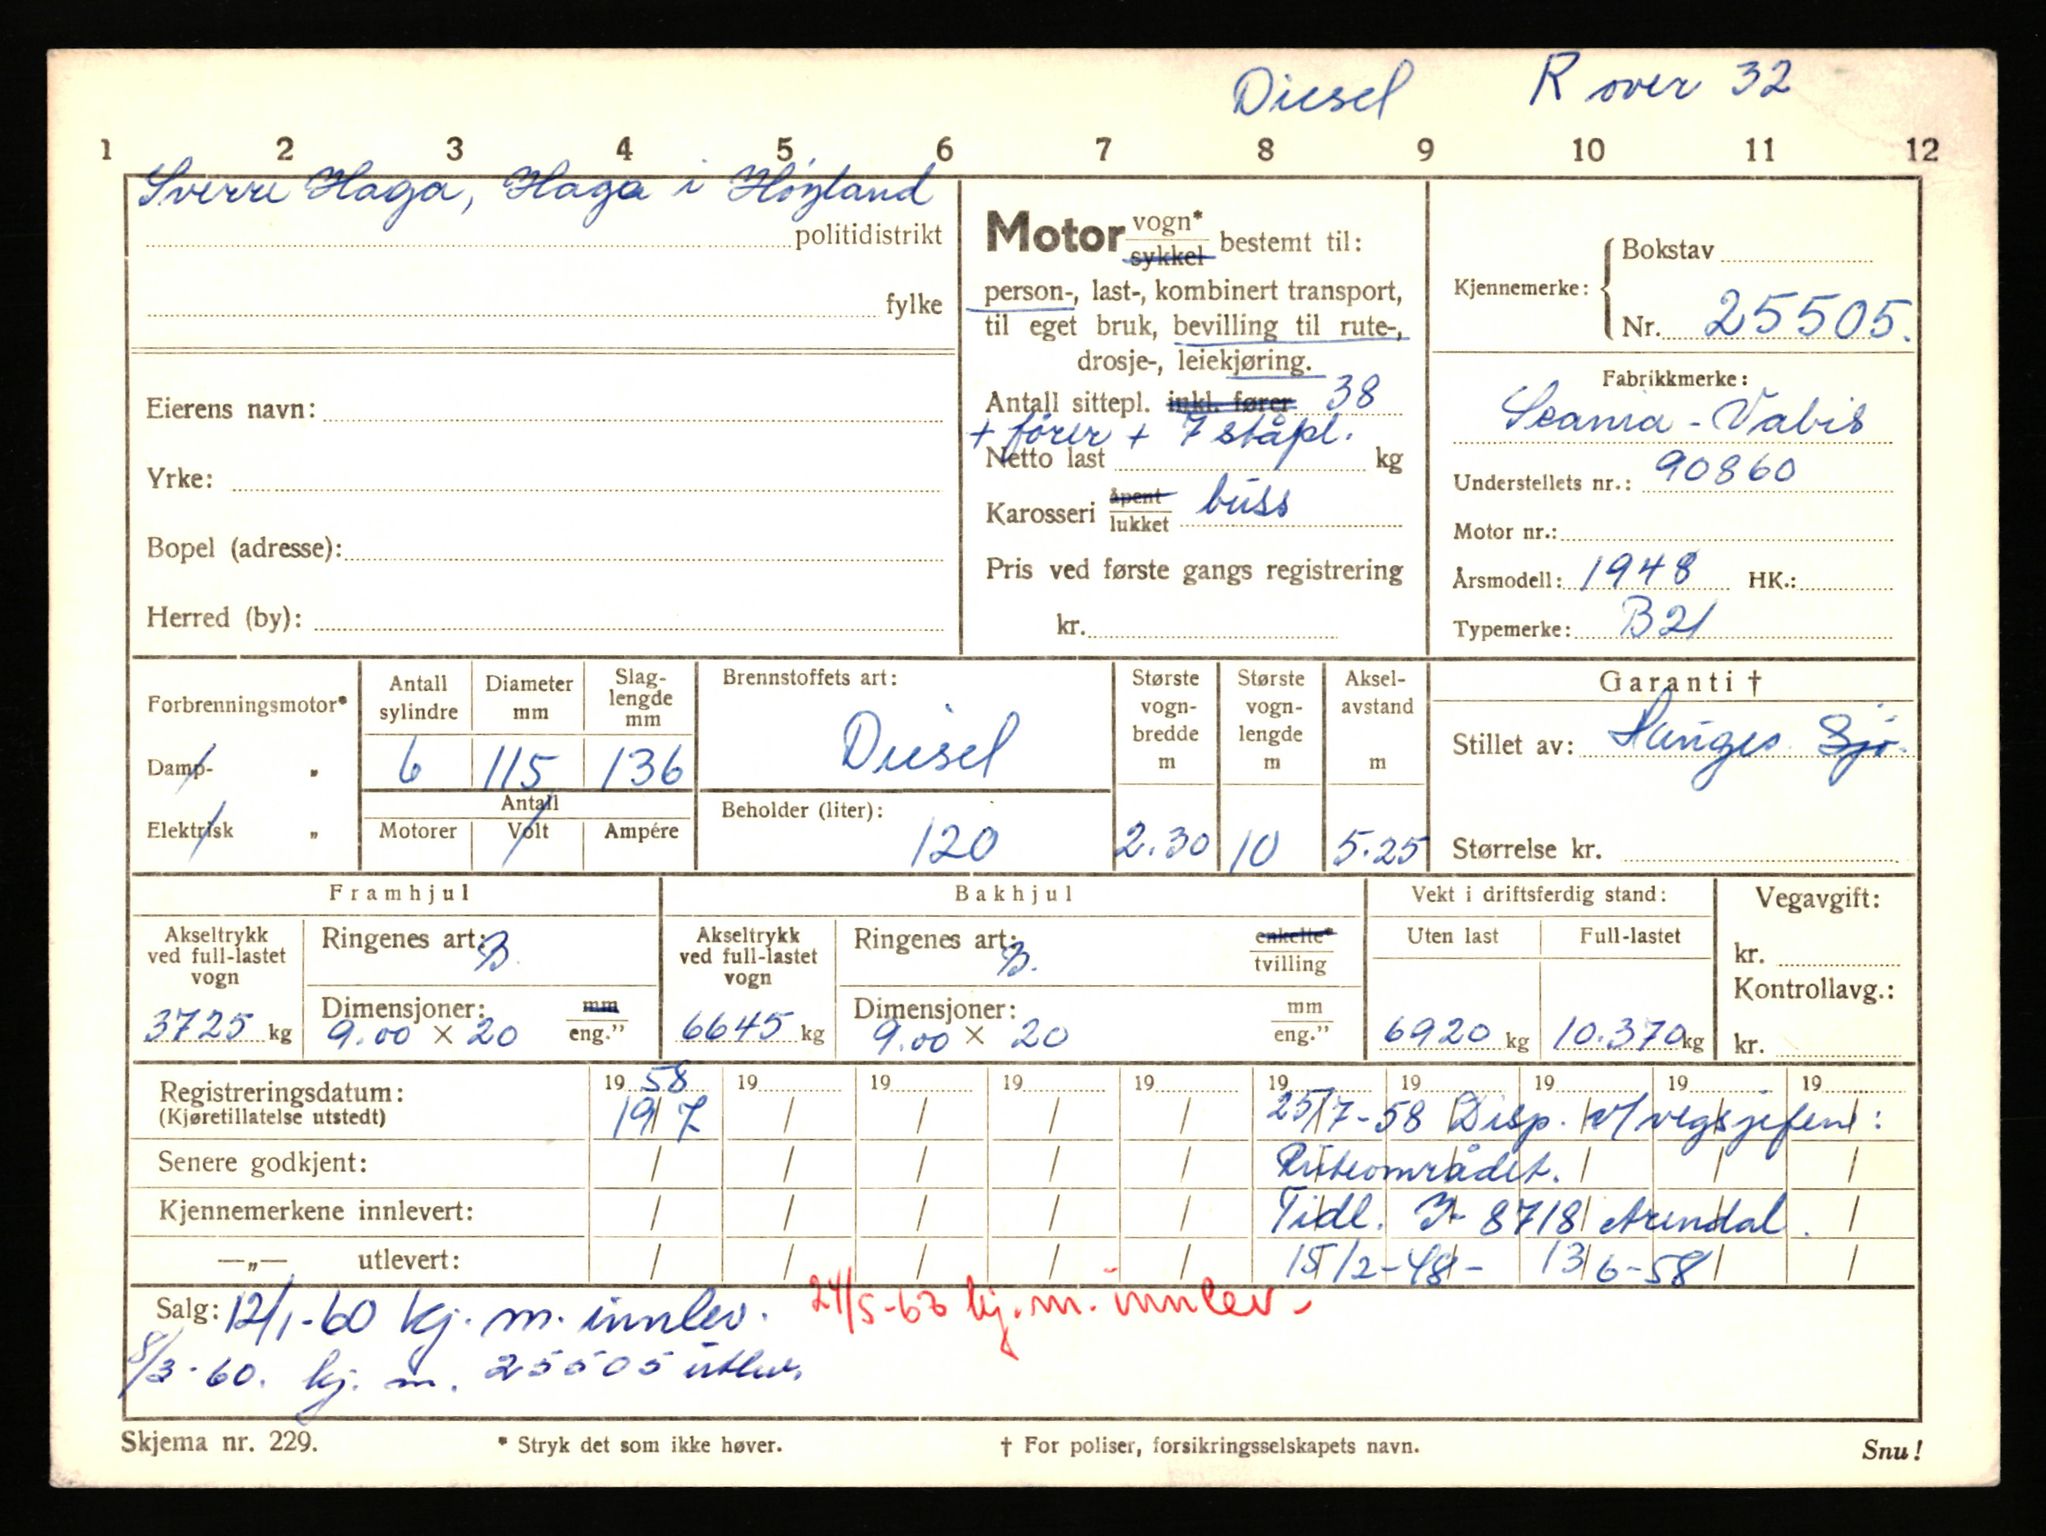 Diesel R over 32
1 2 3 4 5 6 7 8 9 10 11 12
Sverre Haga, Haga i Høyland
politidistrikt
fylke
Eierens navn:
Yrke:
Bopel (adresse):
Herred (by):
Motor vogn* sykkel bestemt til:
person-, last-, kombinert transport,
til eget bruk, bevilling til rute-,
drosje-, leiekjøring.
Antall sittepl. inkl. fører 38
+ fører + 7 ståpl.
Netto last kg
Karosseri åpent lukket buss
Pris ved første gangs registrering
kr.
Kjennemerke: Bokstav
Nr. 25505.
Fabrikkmerke:
Scania - Vabis
Understellets nr.: 90860
Motor nr.:
Årsmodell: 1948 HK.:
Typemerke: B21
Forbrenningsmotor*
Damp- "
Elektrisk "
Antall sylindre
6
Diameter mm
115
Slag-lengde mm
136
Antall
Motorer Volt Ampére
Brennstoffets art:
Diesel
Beholder (liter):
120
Største vogn-bredde m
2.30
Største vogn-lengde m
10
Aksel-avstand m
5.25
Garanti †
Stillet av: Hauges Sjø.
Størrelse kr.
Framhjul
Akseltrykk
ved full-lastet
vogn
3725 kg
Ringenes art: B.
Dimensjoner: mm
9.00 x 20 eng."
Bakhjul
Akseltrykk
ved full-lastet
vogn
6645 kg
Ringenes art: B. enkelte* tvilling
Dimensjoner: mm
9.00 x 20 eng."
Vekt i driftsferdig stand:
Uten last Full-lastet
6920 kg 10.370 kg
Vegavgift:
kr.
Kontrollavg.:
kr.
Registreringsdatum: 19 58 19 19 19 19 19 19 19 19 19
(Kjøretillatelse utstedt) 19/7 / / / / 25/7-58 Disp. v/vegsjefen:
Senere godkjent: / / / / / Ruteområdet.
Kjennemerkene innlevert: / / / / / Tidl. I- 8718 Arendal.
—„— utlevert: / / / / / 15/2-48 - 13/6-58
Salg: 12/1-60 kj. m. innlev. 24/5-60 kj. m. innlev.
8/3-60. kj. m. 25505 utlev.
Skjema nr. 229. * Stryk det som ikke høver. † For poliser, forsikringsselskapets navn. Snu!